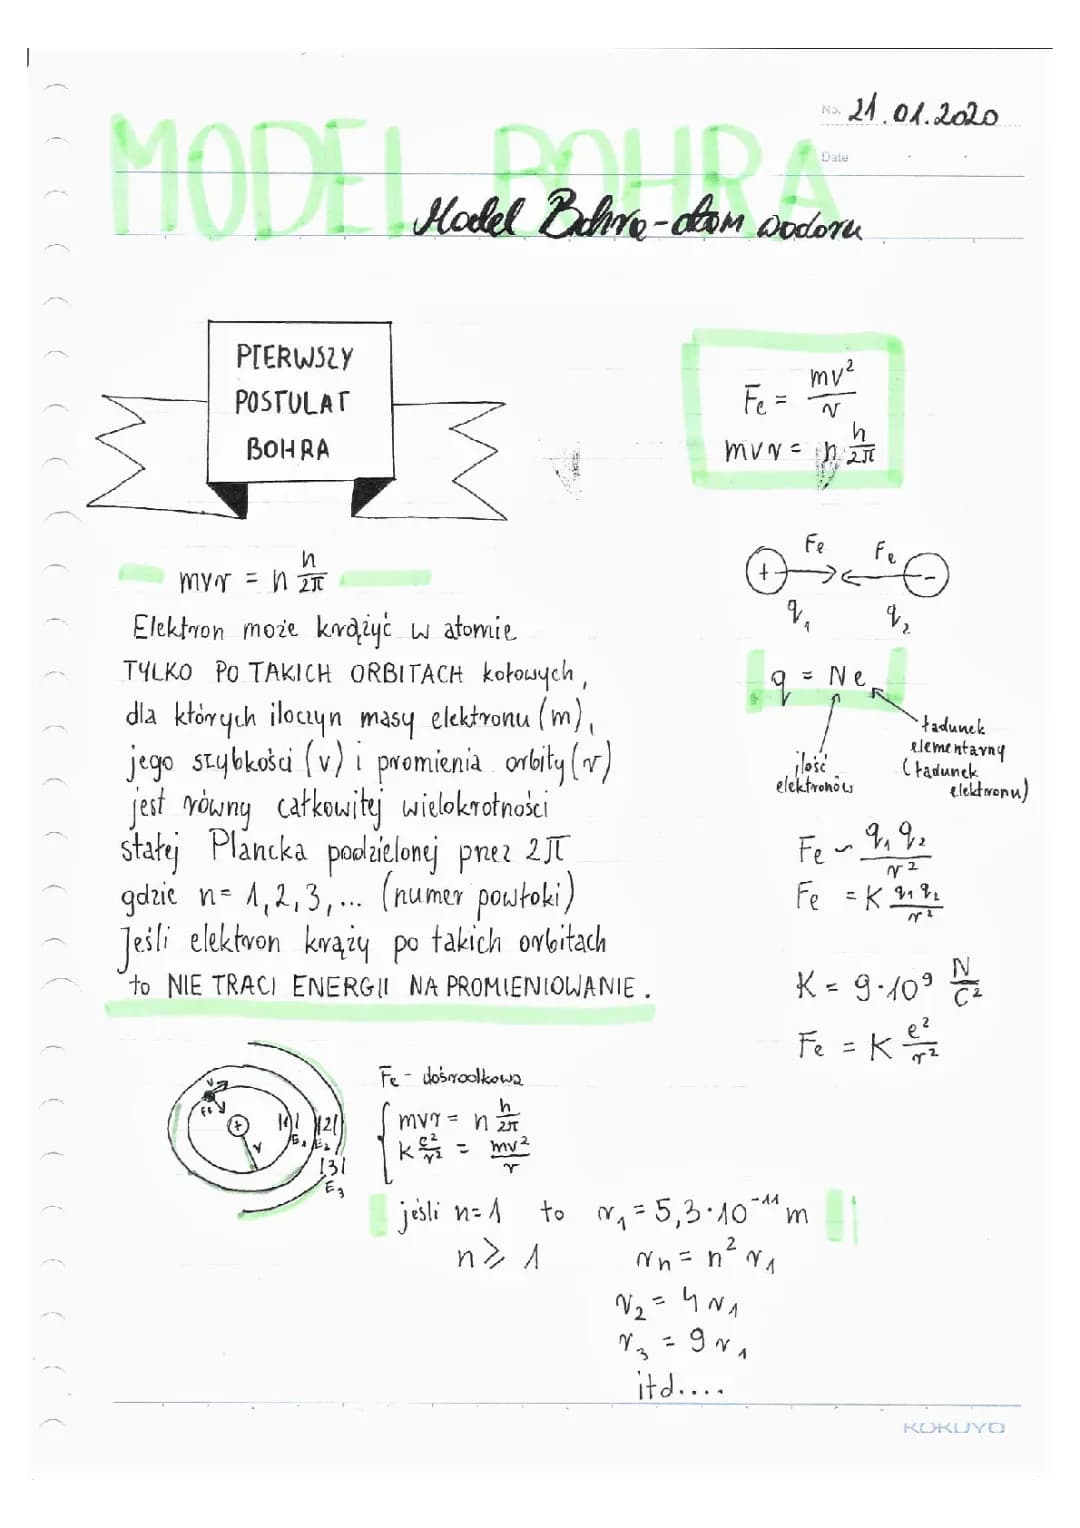 No. 21.01.2020
Date
MODEL BOHRA
Model Bohra-atom wodoru
PIERWSZY
POSTULAT
BOHRA
Fe = mv²/r
mvr = n h/2π
mvr = n h/2π
Elektron może krążyć w atomie
TYLKO PO TAKICH ORBITACH kołowych,
dla których iloczyn masy elektronu (m),
jego szybkości (v) i promienia orbity (r)
jest równy całkowitej wielokrotności
stałej Plancka podzielonej przez 2π
gdzie n= 1,2,3,... (numer powłoki)
Jeśli elektron krąży po takich orbitach
to NIE TRACI ENERGII NA PROMIENIOWANIE.
Fe Fe
+ -
q₁ q₂
q = Ne
ilość
elektronów
ładunek
elementarny
(ładunek
elektronu)
Fe ~ q₁q₂/r²
Fe = K q₁q₂/r²
K = 9·10⁹ N/C²
Fe = K e²/r²
v
Fe
+
r
|1| |2|
E₁ E₂
|3|
E₃
Fe - dośrodkowa
mvr = n h/2π
k e²/r² = mv²/r
jeśli n=1 to r₁ = 5,3·10⁻¹¹ m
n ⩾ 1 rn = n² r₁
r₂ = 4 r₁
r₃ = 9 r₁
itd....
KOKUYO